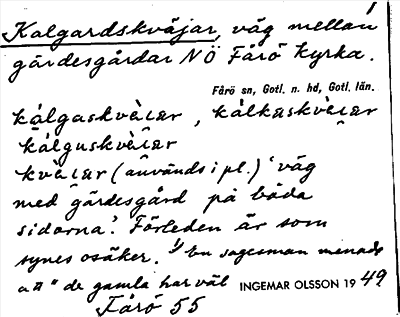 1
Kalgardskväjar, väg mellan
gärdesgårdar NÖ Fårö kyrka.
Fårö sn, Gotl. n. hd, Gotl. län.
kálgaskvèıar, kálkaskvèıar
kálguskvèıar
kvèıar (används i pl.) 'väg
med gärdesgård på båda
sidorna'. Förleden är som
synes osäker. 1/ En sagesman menade
att "de gamla har väl
INGEMAR OLSSON 1949
Fårö 55